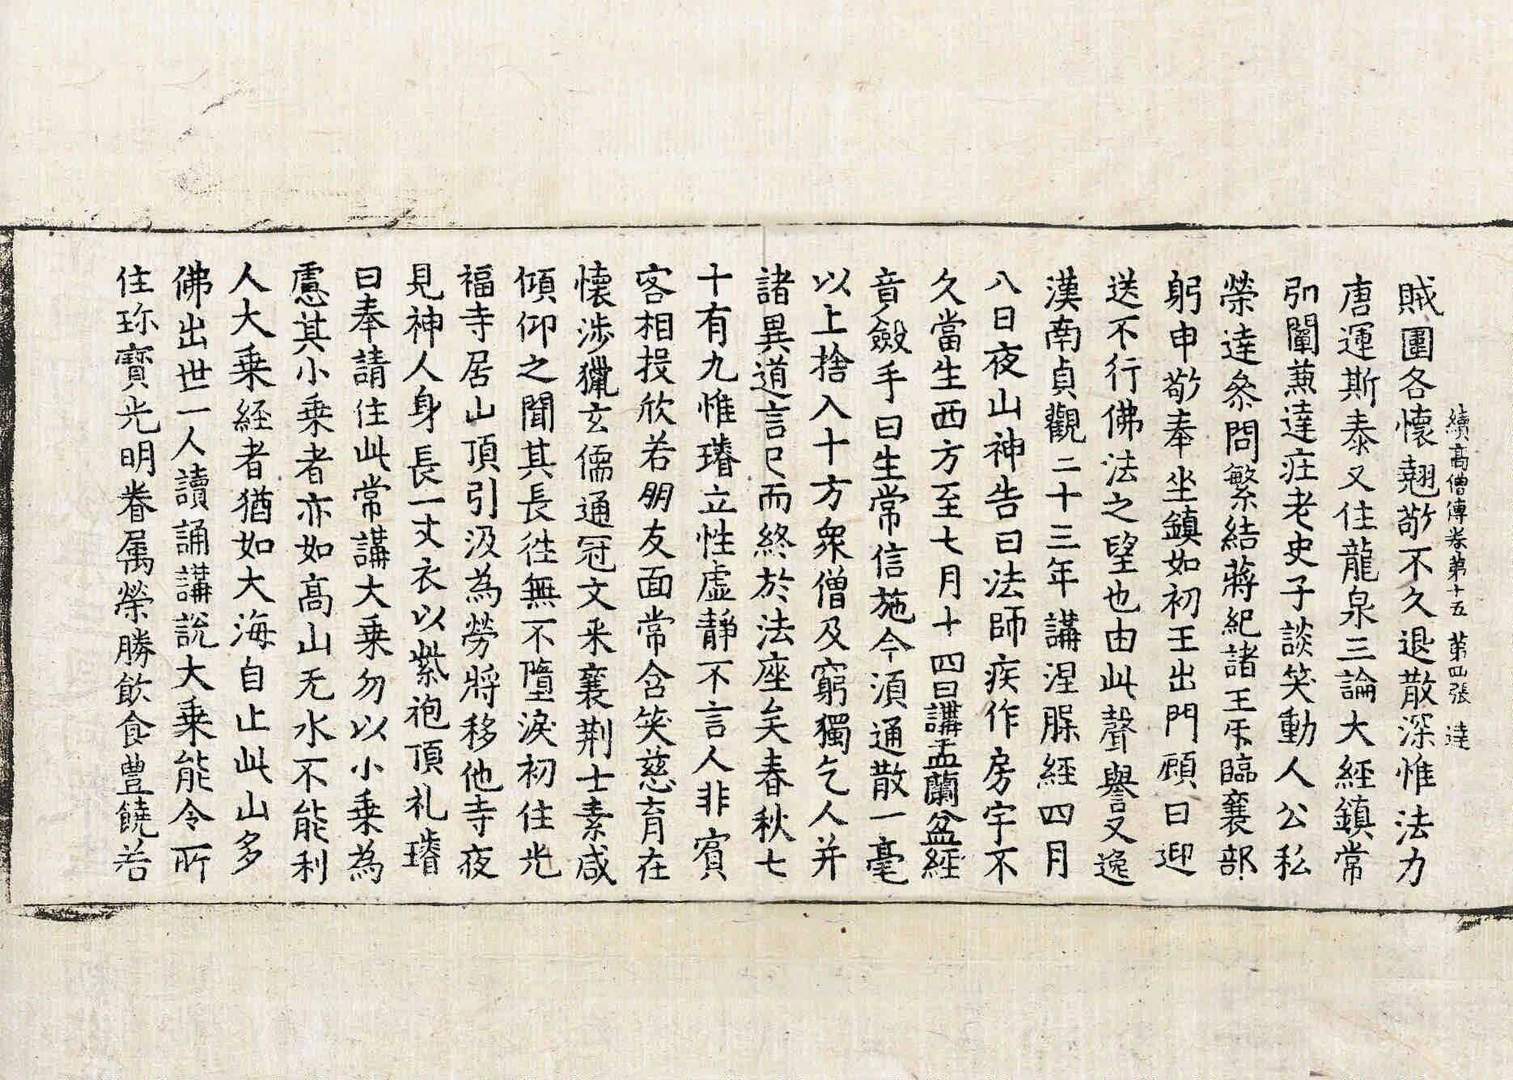 續高僧傳卷第十五 第四張 達
賊圍各懷翹敬不久退散深惟法力
唐運斯泰又住龍泉三論大經鎮常
弘闡兼達莊老史子談笑動人公私
榮達叅問繁結蔣紀諸王互臨襄部
躬申敬奉坐鎮如初王出門顧曰迎
送不行佛法之望也由此聲譽又逸
漢南貞觀二十三年講涅槃經四月
八日夜山神告曰法師疾作房宇不
久當生西方至七月十四日講盂蘭盆經
竟斂手曰生常信施今須通散一毫
以上捨入十方衆僧及窮獨乞人并
諸異道言已而終於法座矣春秋七
十有九惟璿立性虛靜不言人非賓
客相投欣若朋友面常含笑慈育在
懷涉獵玄儒通冠文采襄荆士素咸
傾仰之聞其長徃無不墮淚初住光
福寺居山頂引汲為勞將移他寺夜
見神人身長一丈衣以紫袍頂礼璿
曰奉請住此常講大乗勿以小乗為
慮其小乗者亦如高山无水不能利
人大乗經者猶如大海自止此山多
佛出世一人讀誦講說大乗能令所
住珎寶光明眷属榮勝飲食豊饒若